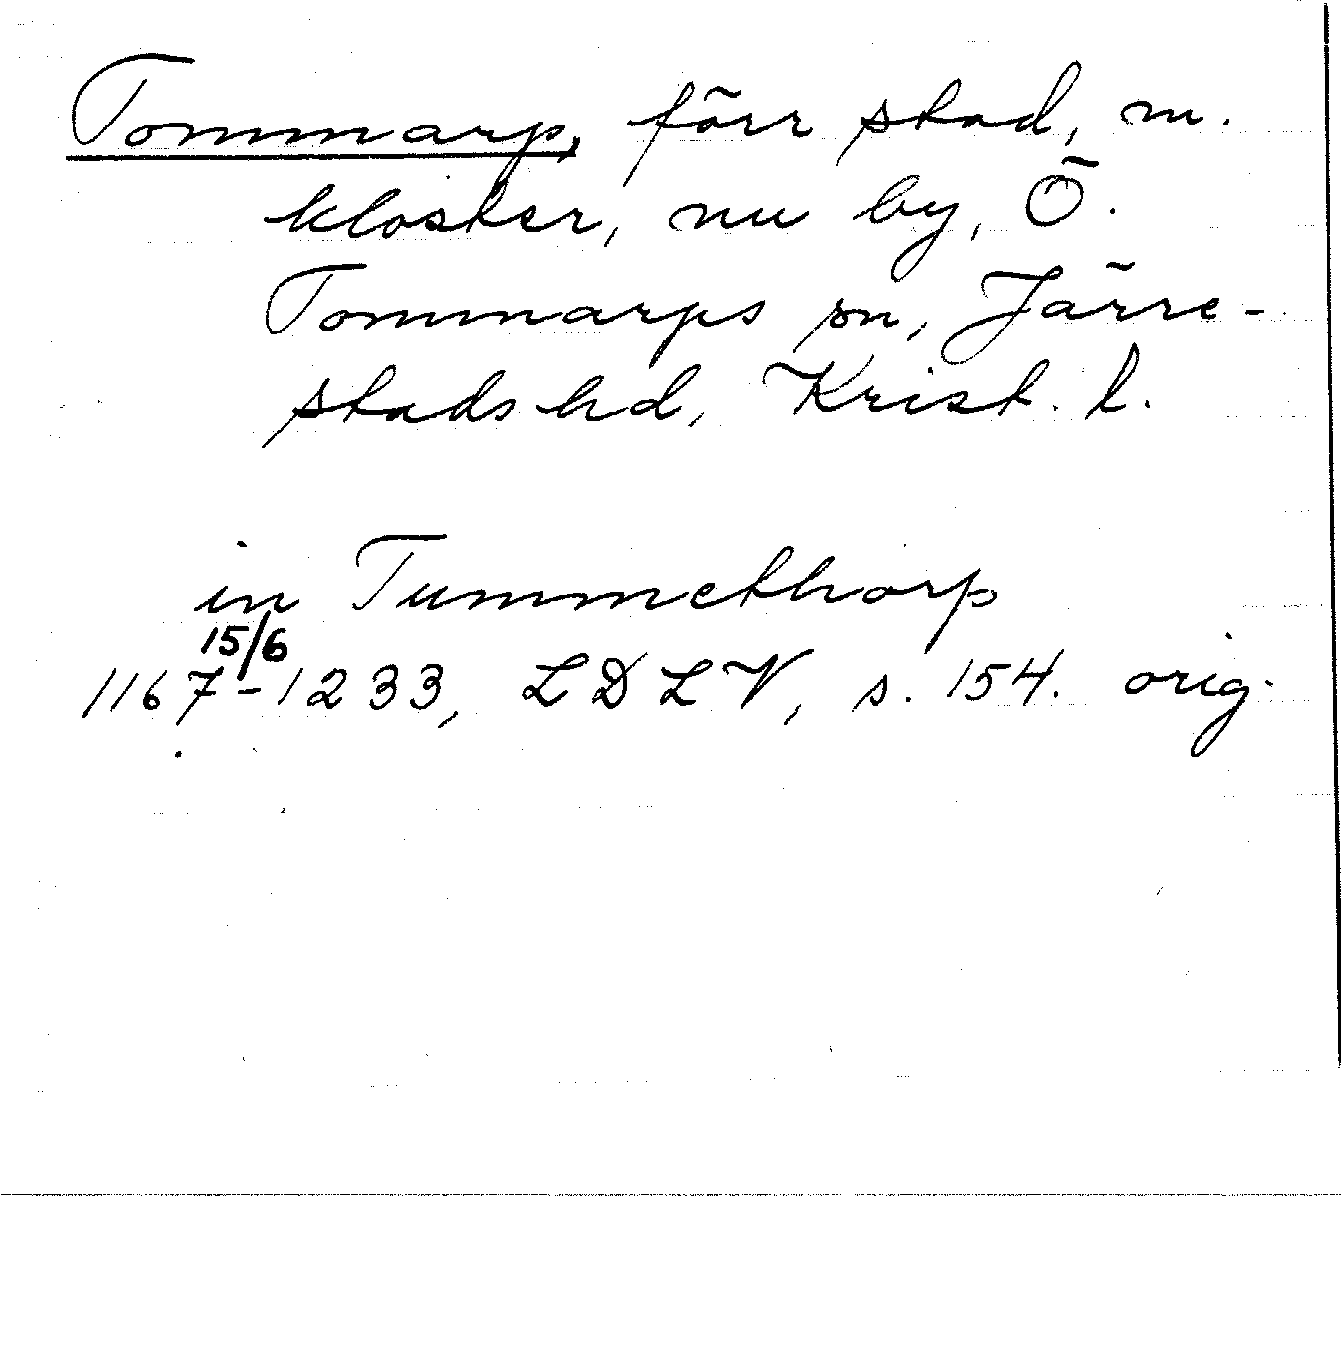 Tommarp, förr stad, m.
kloster, nu by, Ö.
Tommarps sn, Järre-
stads hd, Krist. l.
in Tummethorp
15/6
1167-1233, LDLV, s. 154. orig.